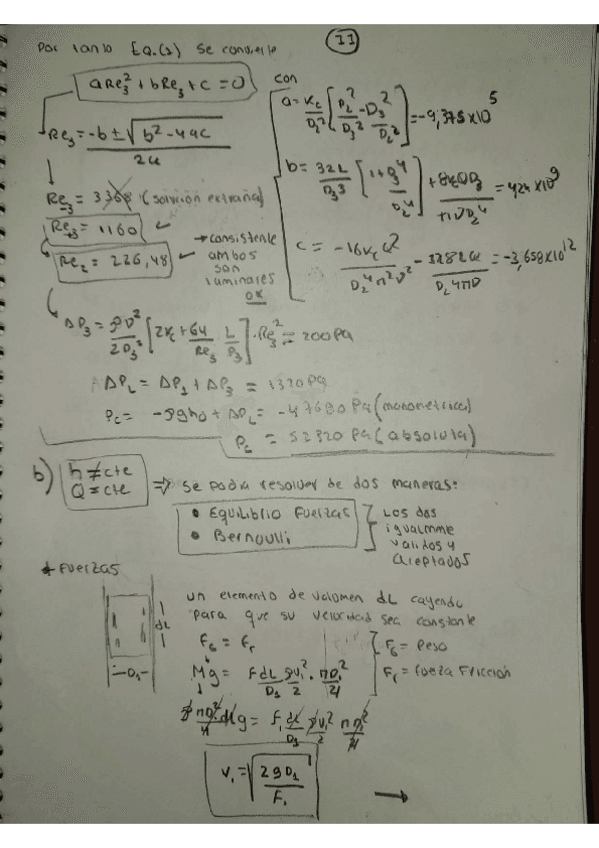 Por tanto Eq.(2) se convierte
11
aRe₃² + bRe₃ + c = 0
con
a = Kc/D₂² [D₂²/D₃² - D₃²/D₂²] = -9,375 x 10⁵
Re₃ = -b ± √(b² - 4ac) / 2a
b = 32L/D₃³ [1 + D₃⁴/D₂⁴] + 8KQD₃/πνD₂⁴ = 424 x 10⁹
Re₃ = 3368 (solución extraña)
Re₃ = 1160 ✓
Re₂ = 226,48 ✓
→ consistente
ambos
son
laminares
OK
c = -16KcQ²/D₂⁴π²ν² - 128LQ/D₂⁴πν = -3,658 x 10¹²
ΔP₃ = ρν²/2D₃² [2Kc + 64/Re₃ L/D₃] · Re₃² = 200 Pa
ΔPL = ΔP₁ + ΔP₃ = 1320 Pa
Pc = -ρgh₀ + ΔPL = -47680 Pa (manometrica)
Pc = 52320 Pa (absoluta)
b) h ≠ cte
Q = cte
⇒ se podia resolver de dos maneras:
• Equilibrio Fuerzas
• Bernoulli
Los dos
igualmnte
validos y
aceptados
* Fuerzas
un elemento de volumen dL cayendo
para que su velocidad sea constante
dL
D₁
FG = Fr
FG = Peso
Mg = f dL/D₁ ρv₁²/2 · πD₁²/4
Fr = fueza Fricción
ρ πD₁²/4 dL g = f₁ dL/D₁ ρv₁²/2 πD₁²/4
v₁ = √(2gD₁/F₁)
→